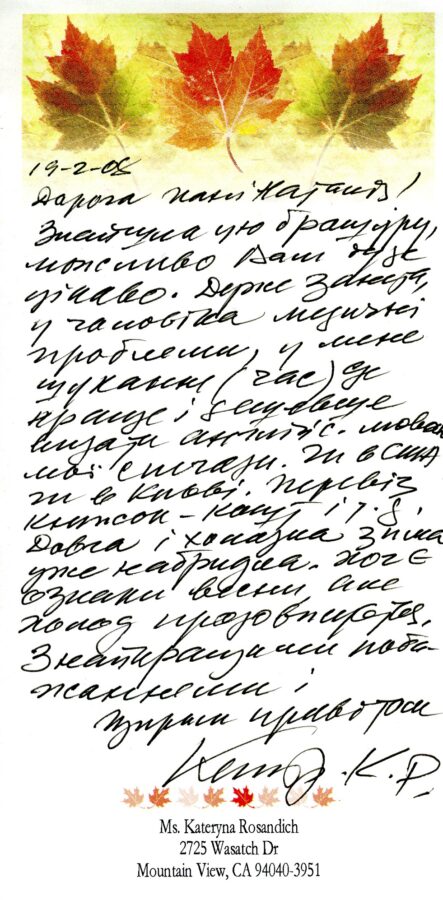 19-2-08
Дорога пані Наталія!
Знайшла цю брошуру,
можливо Вам буде
цікаво. Дуже занята,
у чоловіка медичні
проблеми, у мене
шукання (час) де
краще і дешевше
видати англійс. мовою
мої спогади. Чи в США
чи в Києві. Перевіз
книжок – кошт і т. д.
Довга і холодна зима
уже набридла. Хоч є
ознаки весни, але
холод продовжується.
З найкращими поба-
жаннями і
Щирим привітом
К.Р.
Ms. Kateryna Rosandich
2725 Wasatch Dr
Mountain View, CA 94040-3951